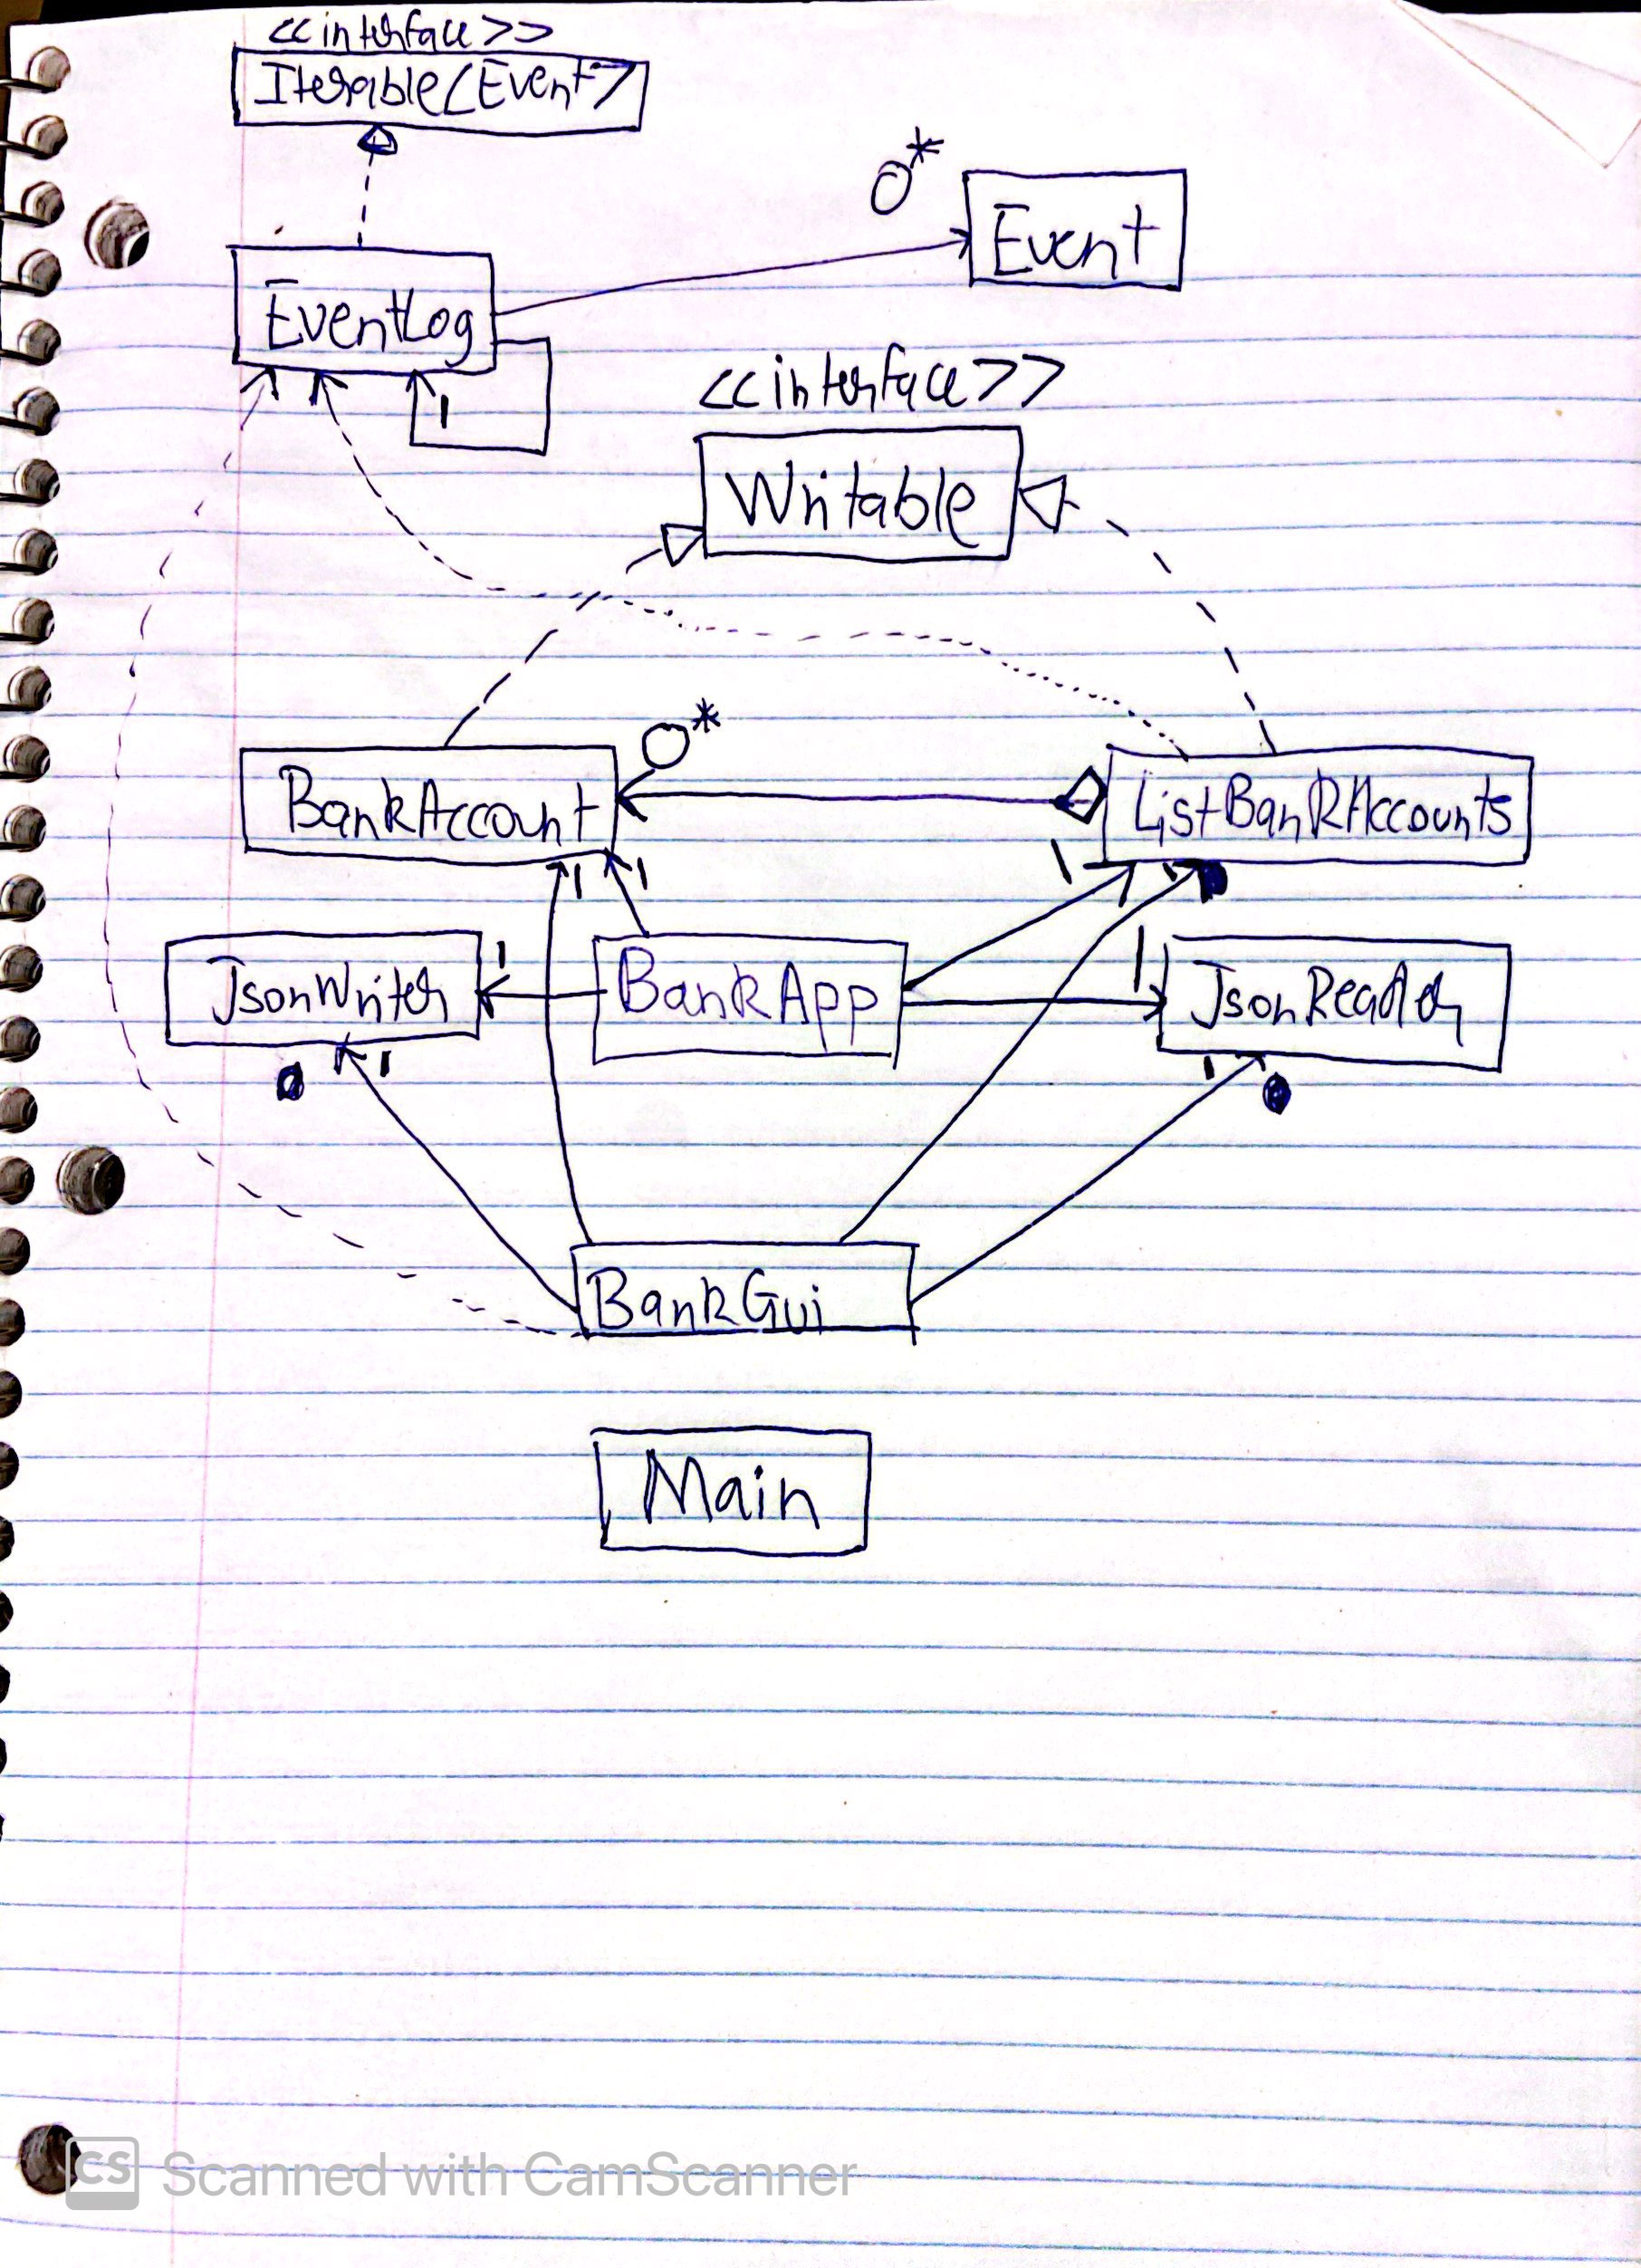 <<interface>>
Iterable<Event>
0*
Event
EventLog
1
<<interface>>
Writable
0*
BankAccount
ListBankAccounts
1
1
1
1
1
1
JsonWriter
BankApp
JsonReader
1
1
BankGui
Main
CS Scanned with CamScanner